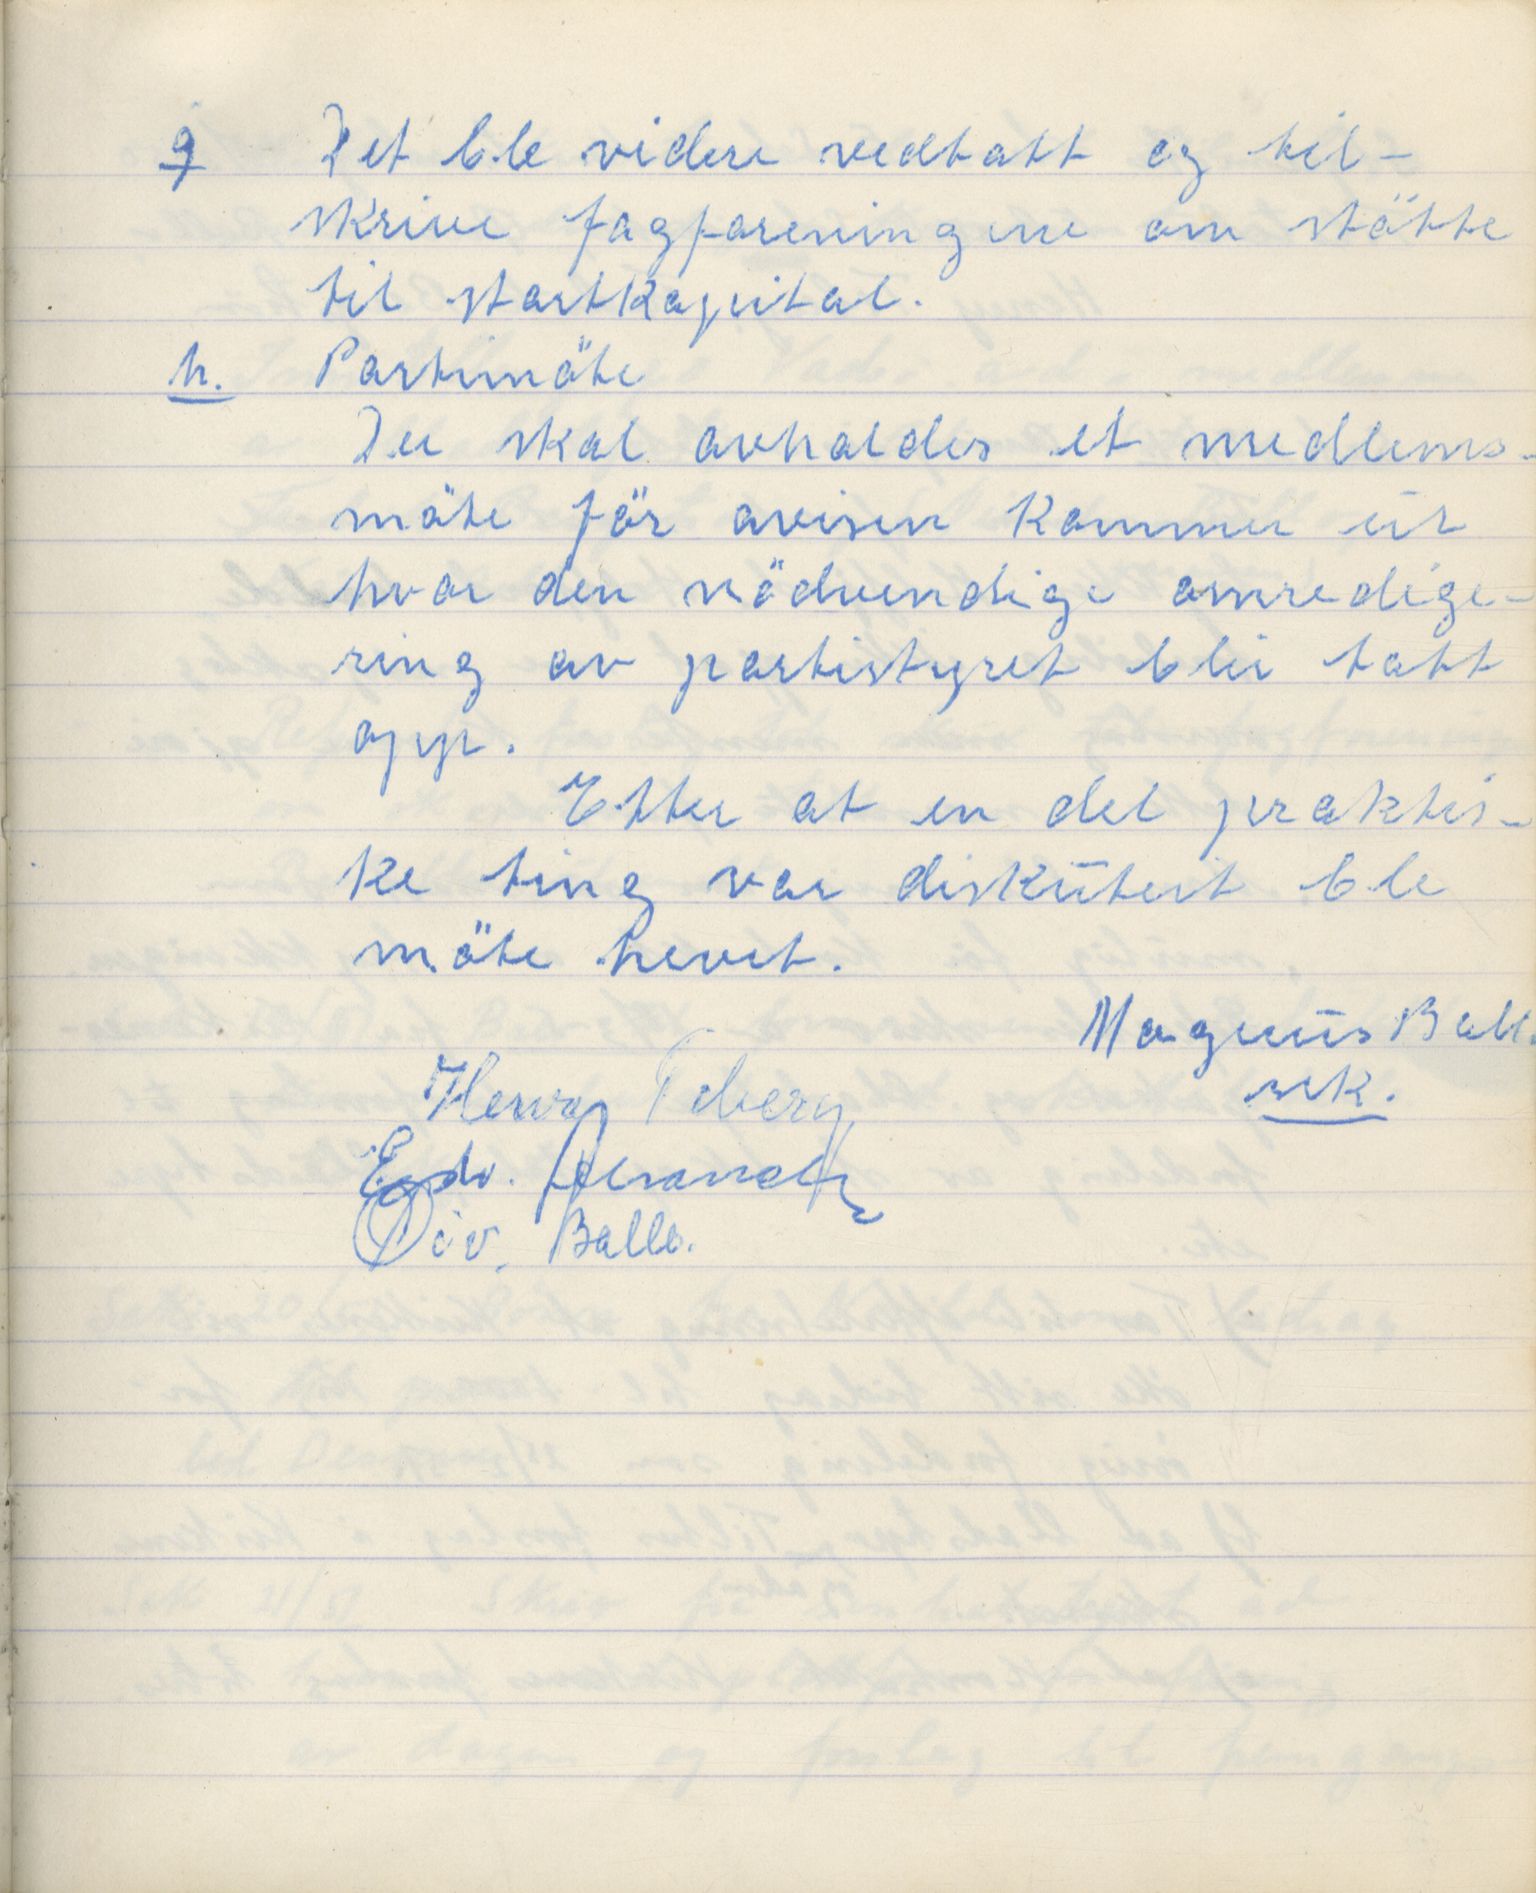 g Det ble videre vedtatt og til-
skrive fagforeningene om stötte
til startkapital.
h. Partimöte
Der skal avholdes et medlems-
möte för avisen kommer ut
hvor den nödvendige omredige-
ring av partistyret blir tatt
opp.
Etter at en del praktis-
ke ting var diskutert ble
möte hevet.
Magnus Ball.
sek.
Henry
Edv.
Div. Ballo.